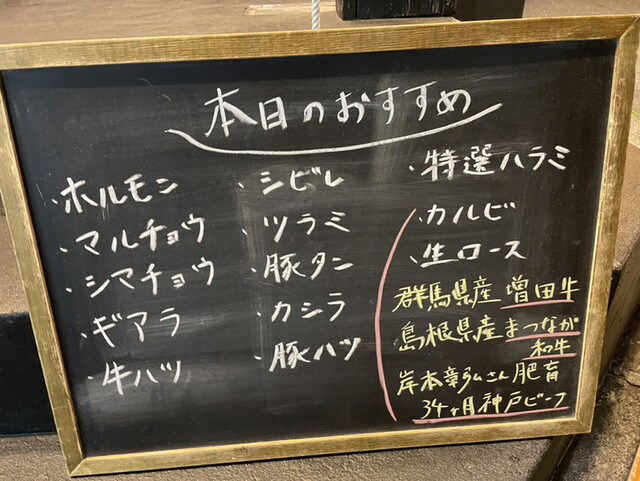 本日のおすすめ
・ホルモン
・マルチョウ
・シマチョウ
・ギアラ
・牛ハツ
・シビレ
・ツラミ
・豚タン
・カシラ
・豚ハツ
・特選ハラミ
・カルビ
・生ロース
群馬県産 増田牛
島根県産 まつなが
和牛
岸本彰弘さん肥育
34ヶ月神戸ビーフ